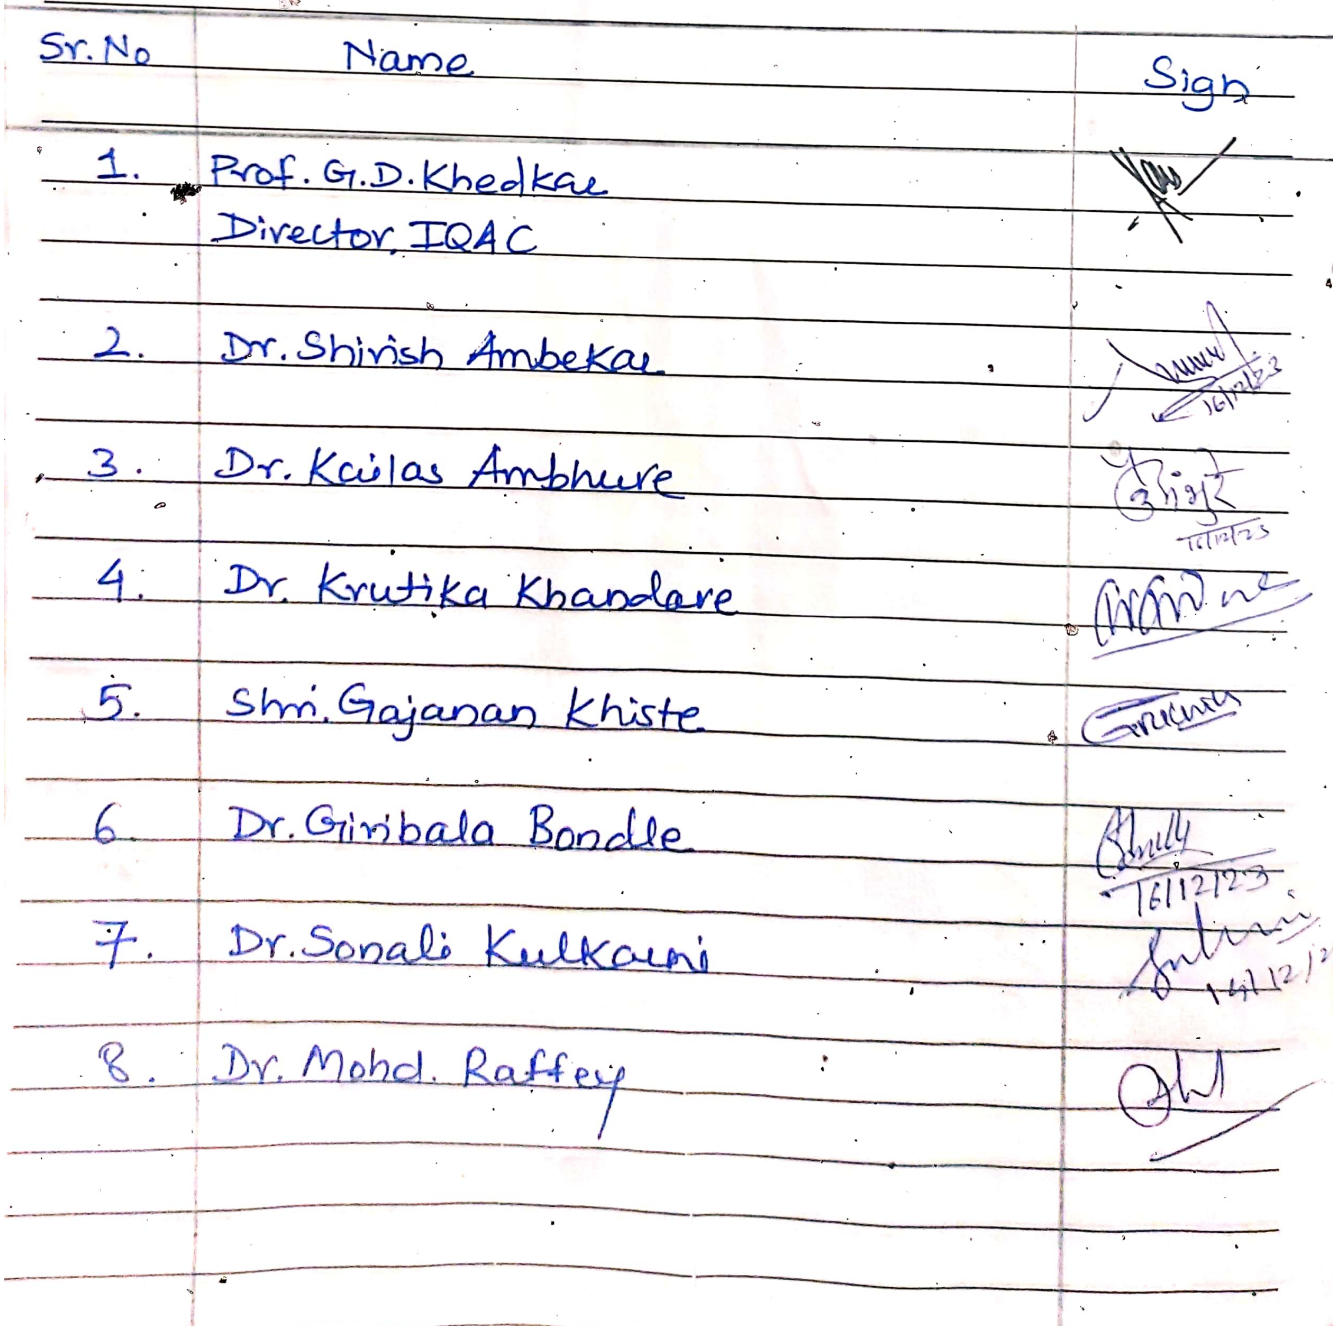 Sr.No Name Sign
1. Prof. G.D. Khedkar
Director, IQAC
2. Dr. Shirish Ambekar
16/12/23
3. Dr. Kailas Ambhure
16/12/23
4. Dr. Krutika Khandare
5. Shri. Gajanan Khiste
6. Dr. Giribala Bondle
16/12/23
7. Dr. Sonali Kulkarni
8. Dr. Mohd. Raffey